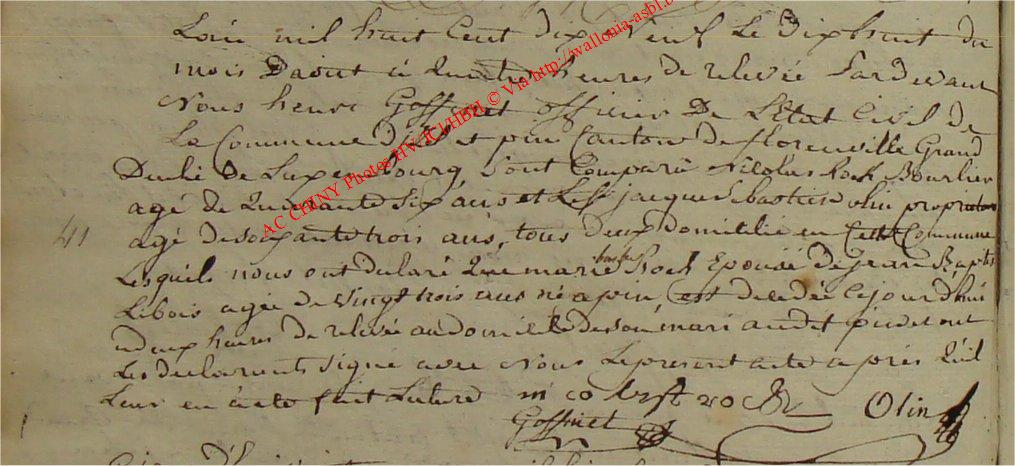 L'an mil huit Cent dix neuf Le dixhuit du
mois Daout à quatre heures de relevée Pardevant
Nous henri Goffinet officier De L'Etat Civil de
La Commune d' et pin Canton de florenville Grand
Duché De Luxembourg sont Comparu Nicolas Roch Bourlier
agé de quarante six ans et Le Sr jacque Sebastien olin propriétaire
41
agé de soixante trois ans, tous deux domicilié en Cette Commune
Lesquels nous ont déclaré que marie barbe Roch Epouse de jean Bapts
Libois agée de vingt trois ans né a pin, est decedée Cejourd'hui
a deux heures de relevée au domicile de son mari audit pin et ont
Les déclarants signé avec Nous Le present acte aprés qu'il
Leur en a été fait Lecture
nicolas roch
Olin
Goffinet
AC CHINY Photos HV-ICI/HBH © Via http://wallonia-asbl.b